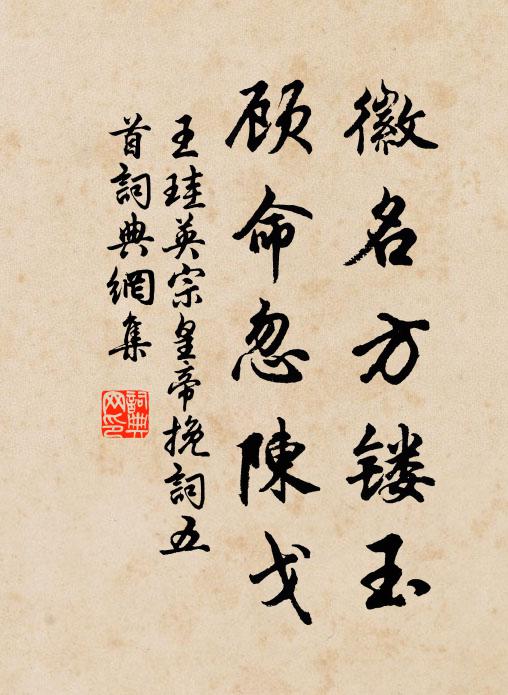 徽名方镂玉
顾命忽陳戈
王珪英宗皇帝挽詞五
首詞典網集
詞典
网印